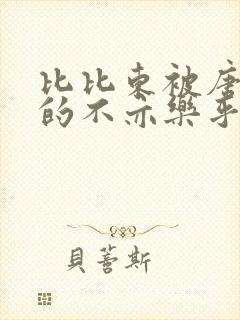 比比东被唐
的不亦樂乎
貝蒼斯